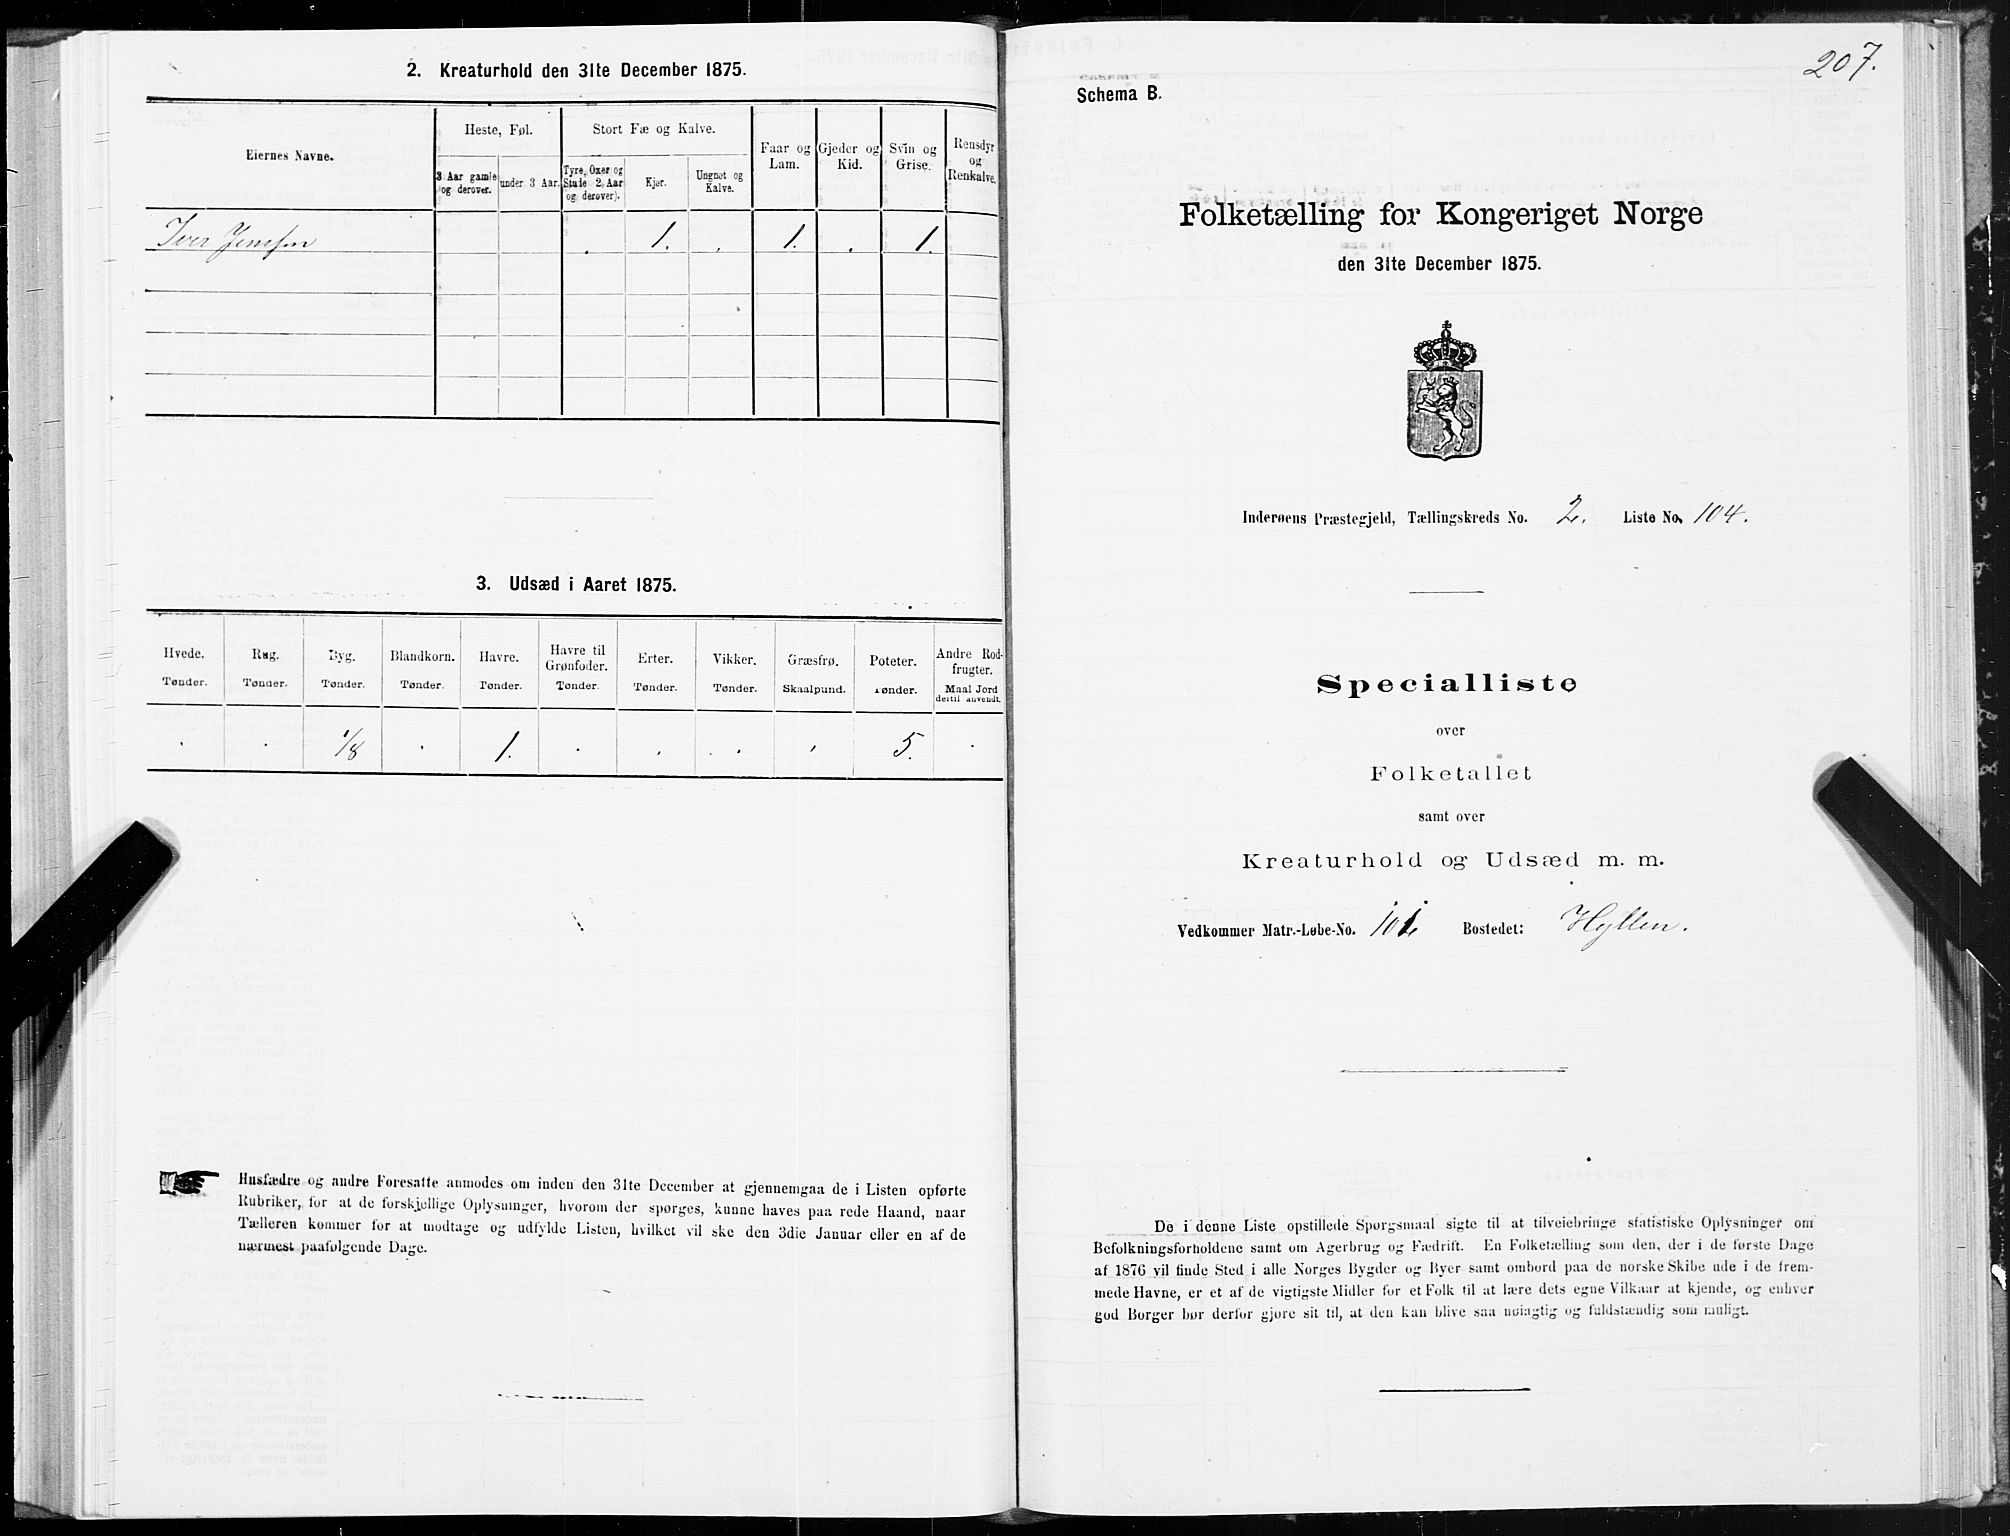 2. Kreaturhold den 31te December 1875.
Eiernes Navne.
Heste, Føl.
Stort Fæ og Kalve.
Faar og Lam.
Gjeder og Kid.
Svin og Grise.
Rensdyr og Renkalve.
3 Aar gamle og derover.
under 3 Aar.
Tyre, Oxer og Stude 2 Aar og derover).
Kjør.
Ungnøt og Kalve.
Iver Jensen . 1. . 1. . 1.
3. Udsæd i Aaret 1875.
Hvede. Rug. Byg. Blandkorn. Havre. Havre til Grønfoder. Erter. Vikker. Græsfrø. Poteter. Andre Rodfrugter.
Tønder. Tønder. Tønder. Tønder. Tønder. Tønder. Tønder. Tønder. Skaalpund. Tønder. Maal Jord dertil anvendt.
. . 1/8 . 1. . . . . 5. .
Husfædre og andre Foresatte anmodes om inden den 31te December at gjennemgaa de i Listen opførte
Rubriker, for at de forskjellige Oplysninger, hvorom der spørges, kunne haves paa rede Haand, naar
Tælleren kommer for at modtage og udfylde Listen, hvilket vil ske den 3die Januar eller en af de
nærmest paafølgende Dage.
207.
Schema B.
Folketælling for Kongeriget Norge
den 31te December 1875.
Inderøens Præstegjeld, Tællingskreds No. 2. Liste No. 104.
Specialliste
over
Folketallet
samt over
Kreaturhold og Udsæd m. m.
Vedkommer Matr.-Løbe-No. Bostedet: Hyllen.
De i denne Liste opstillede Spørgsmaal sigte til at tilveiebringe statistiske Oplysninger om
Befolkningsforholdene samt om Agerbrug og Fædrift. En Folketælling som den, der i de første Dage
af 1876 vil finde Sted i alle Norges Bygder og Byer samt ombord paa de norske Skibe ude i de frem-
mede Havne, er et af de vigtigste Midler for et Folk til at lære dets egne Vilkaar at kjende, og enhver
god Borger bør derfor gjøre sit til, at den kan blive saa nøiagtig og fuldstændig som muligt.